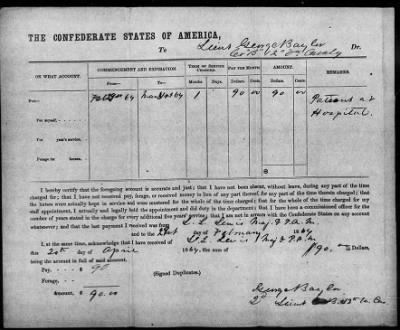 THE CONFEDERATE STATES OF AMERICA,
To Lieut George Baylor Dr.
Co B 12" Va Cavalry
ON WHAT ACCOUNT.
COMMENCEMENT AND EXPIRATION
TERM OF SERVICE CHARGED.
PAY PER MONTH
AMOUNT.
REMARKS.
From—
To—
Months
Days.
Dollars.
Cents
Dollars.
Cents
PAY—
64
64
1
90 00
90 00
Patient at
Hospital.
For myself,
For year's service.
Forage for horses.
$
I hereby certify that the foregoing account is accurate and just; that I have not been absent, without leave, during any part of the time
charged for; that I have not received pay, forage, or received money in lieu of any part thereof, for any part of the time therein charged; that
the horses were actually kept in service and were mustered for the whole of the time charged; that for the whole of the time charged for my
staff appointment, I actually and legally held the appointment and did duty in the department; that I have been a commissioned officer for the
number of years stated in the charge for every additional five years' service; that I am not in arrears with the Confederate States on any account
whatsoever; and that the last payment I received was from
Lewis Maj & P.A.M.
and to the day of February 1864
I, at the same time, acknowledge that I have received of Lewis Maj & P.A.M.
this 20th day of April 1864, the sum of $90. Dollars,
being the amount in full of said account.
Pay, - - - - $ 90
Forage, - -
Amount, - $ 90.00
(Signed Duplicates.)
George Baylor
2d Lieut Co B 12" Va Ca.